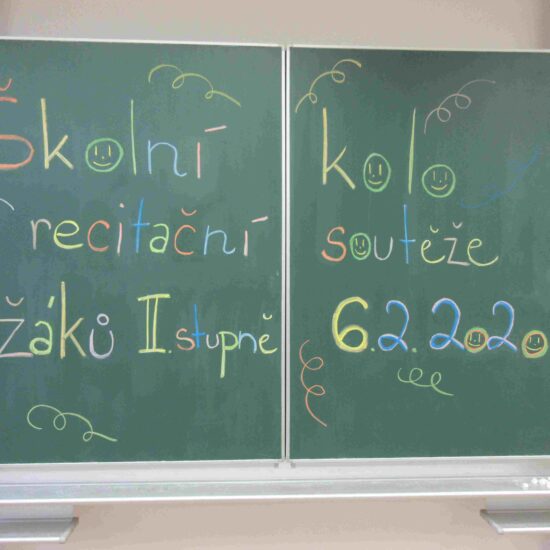 Školní kolo
recitační soutěže
žáků II. stupně 6.2.2020